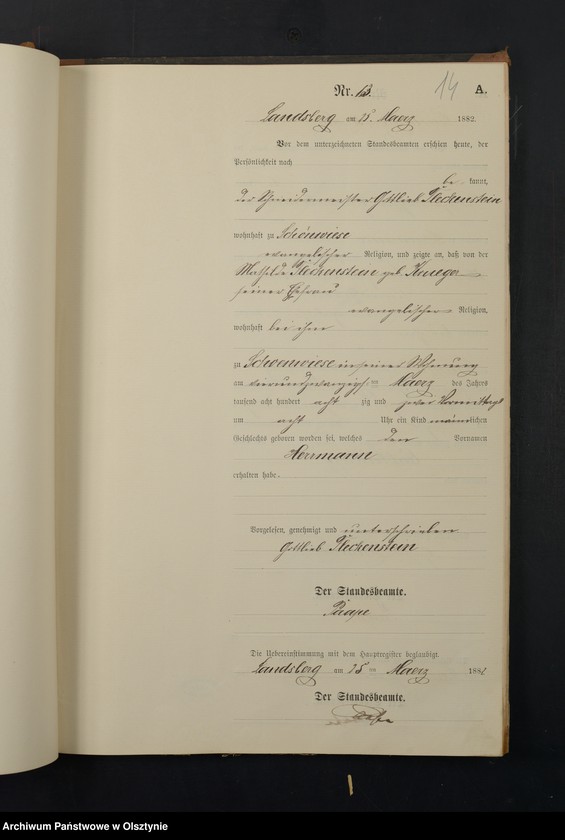 14
Nr. 13. A.
Landsberg am 25ten Maerz 1882.
Vor dem unterzeichneten Standesbeamten erschien heute, der
Persönlichkeit nach
be kannt,
der Schneidermeister Gottlieb Fleckenstein
wohnhaft zu Schönwiese
evangelischer Religion, und zeigte an, daß von der
Mathilde Fleckenstein geb.
seiner Ehefrau
evangelischer Religion,
wohnhaft bei ihm
zu Schoenwiese in seiner Wohnung
am vierundzwanzigsten Maerz des Jahrs
tausend acht hundert acht zig und zwei Vormittags
um acht Uhr ein Kind männlichen
Geschlechts geboren worden sei, welches den Vornamen
Herrmann
erhalten habe.
Vorgelesen, genehmigt und unterschrieben
Gottlieb Fleckenstein
Der Standesbeamte.
Die Uebereinstimmung mit dem Hauptregister beglaubigt.
Landsberg am 25ten Maerz 1882
Der Standesbeamte.
Archiwum Państwowe w Olsztynie